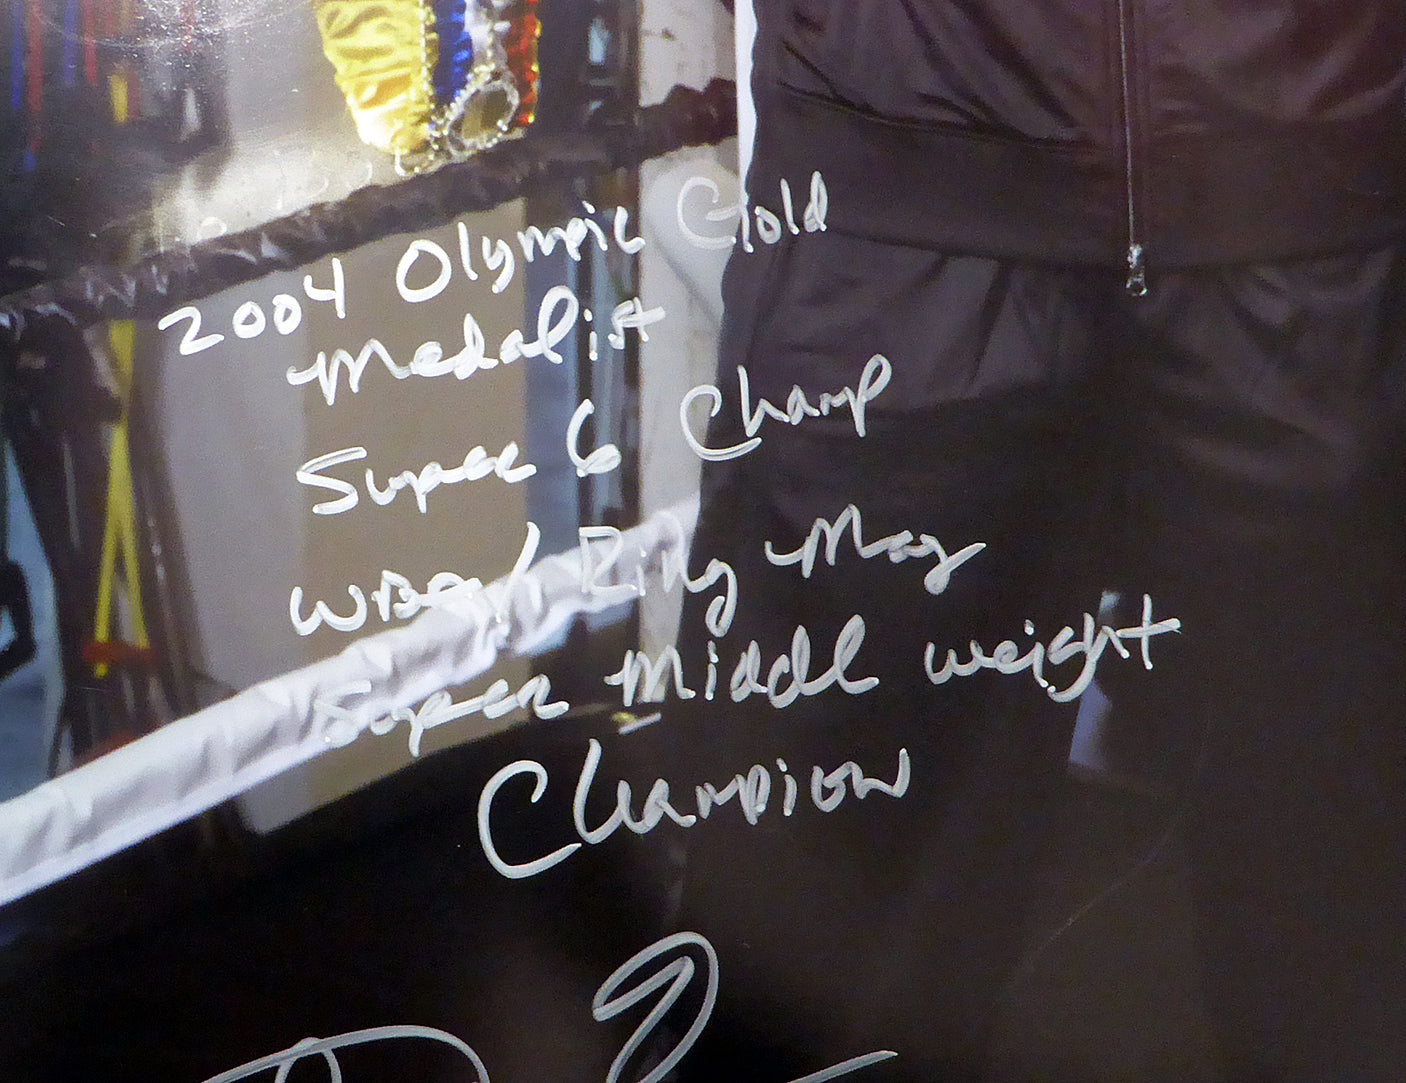 2004 Olympic Gold
Medalist
Super 6 Champ
WBA/Ring Mag
Super Middl weight
Champion